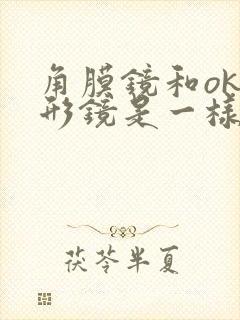 角膜镜和ok
形镜是一样
茯苓半夏